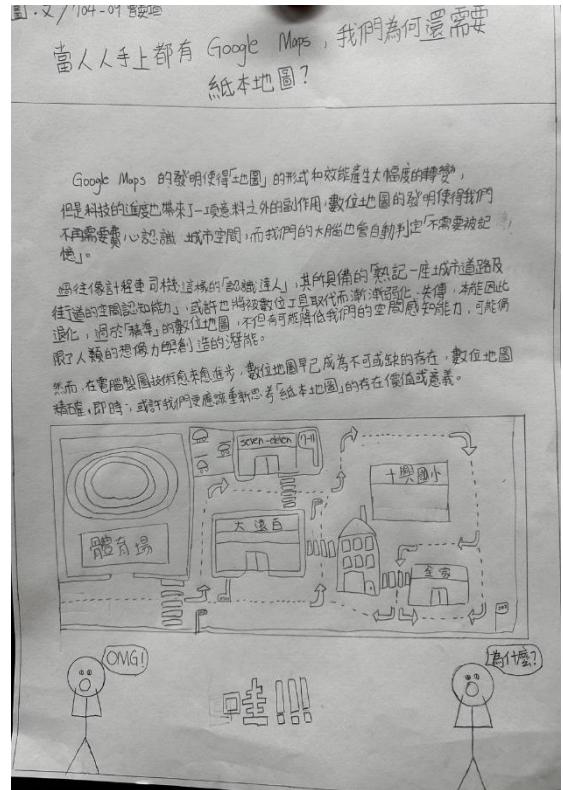 圖.文/704-09
當人人手上都有 Google Maps,我們為何還需要
紙本地圖?
Google Maps 的發明使得「地圖」的形式和效能產生大幅度的轉變,
但是科技的進度也帶來了一項意料之外的副作用,數位地圖的發明使得我們
不再需要費心認識 城市空間,而我們的大腦也會自動判定「不需要被記
憶」。
過往像計程車司機這樣的「認識達人」,其所具備的「熟記一座城市道路及
街道的空間認知能力」,或許也將被數位工具取代而漸漸弱化、失傳,本能因此
退化,過於「精準」的數位地圖,不但有可能降低我們的空間感知能力,可能侷
限了人類的想像力與創造的潛能。
然而,在電腦製圖技術愈來愈進步,數位地圖早已成為不可或缺的存在,數位地圖
精確,即時,或許我們更應該重新思考「紙本地圖」的存在價值或意義。
seven-eleven
7-11
十興國小
大遠百
體育場
全家
OMG!
哇!!!
為什麼?